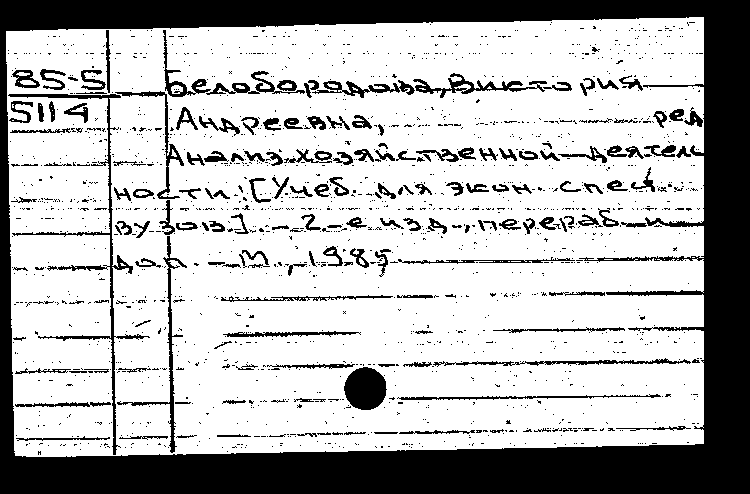 85-5 Белобородова, Виктория
5114 Андреевна, ред
Анализ хозяйственной деятель
ности: [Учеб. для экон. спец.
вузов]. - 2-е изд., перераб. и
доп. - М., 1985